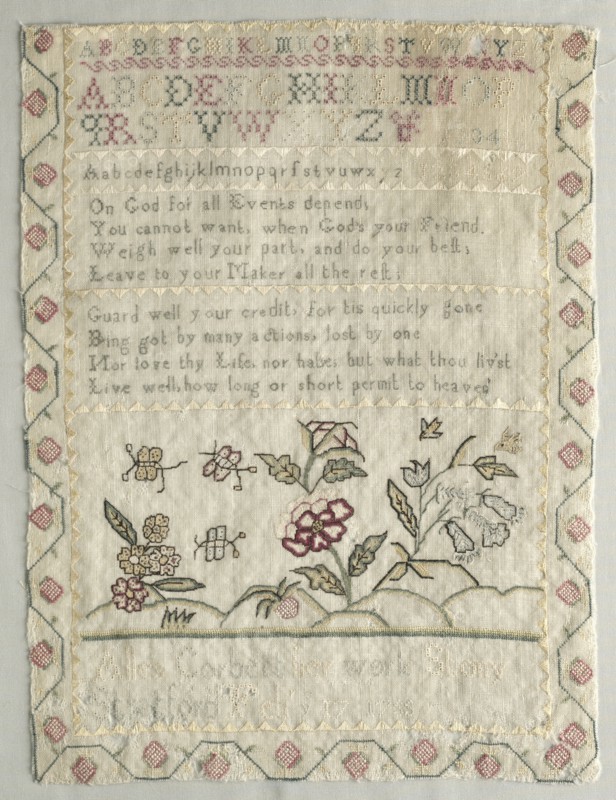 ABCDEFGHIKLMNOPRSTVWXYZ
ABCDEFGHIKLMNOP
QRSTVWXYZ
Aabcdefghijklmnopqrſstvuwxyz
On God for all Events depend,
You cannot want, when God's your Friend.
Weigh well your part, and do your beſt;
Leave to your Maker all the reſt;
Guard well your credit, for tis quickly gone
Bing got by many actions, lost by one
Nor love thy Life, nor hate, but what thou liv'st
Live well, how long or short permit to heaven
Corbett her work